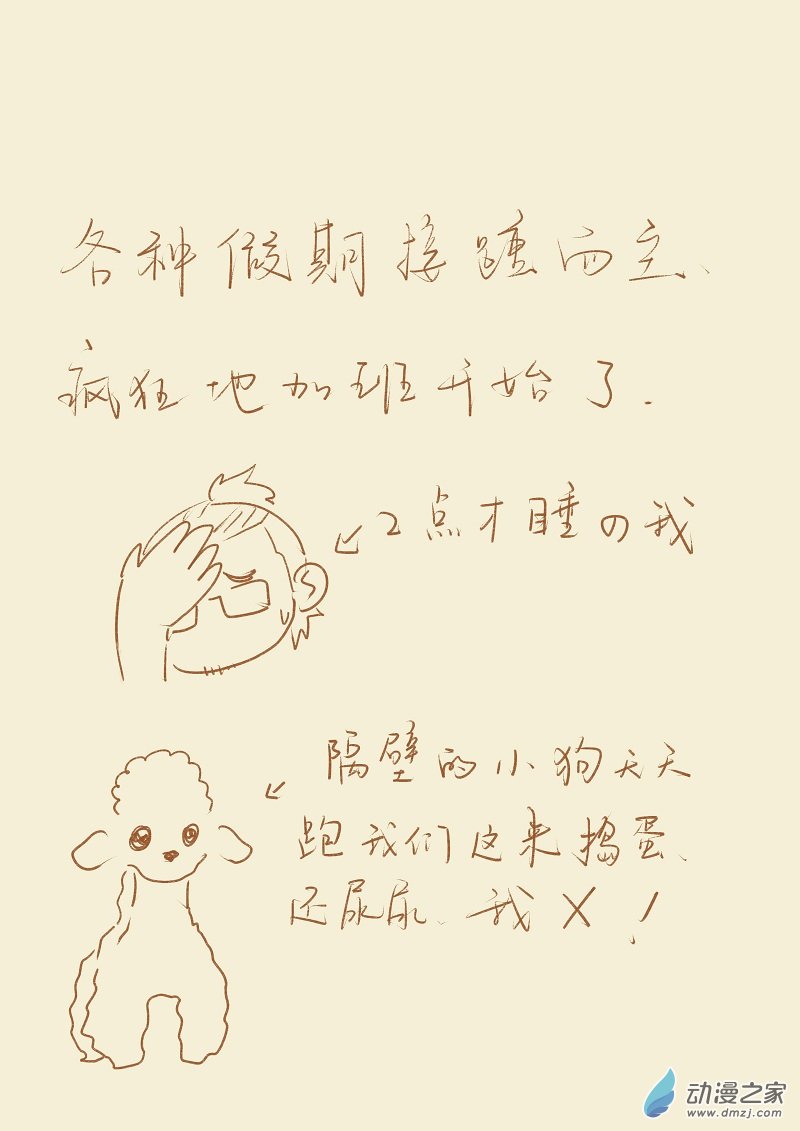 各种假期接踵而至、
疯狂地加班开始了.
2点才睡の我
隔壁的小狗天天
跑我们这来捣蛋、
还尿尿、我X!
动漫之家
www.dmzj.com